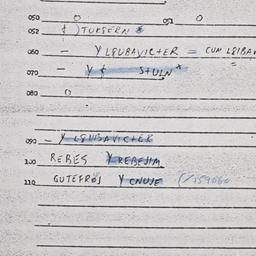 050 0 051 0
052 & ) TURSERN *
060 - Y LPUBAVICHER = CUM
070 - Y & STULN *
080 0
090 - Y LPUBAVICHER
100 REBES Y REBEJIM
110 GUTEFROJ Y CNUJE